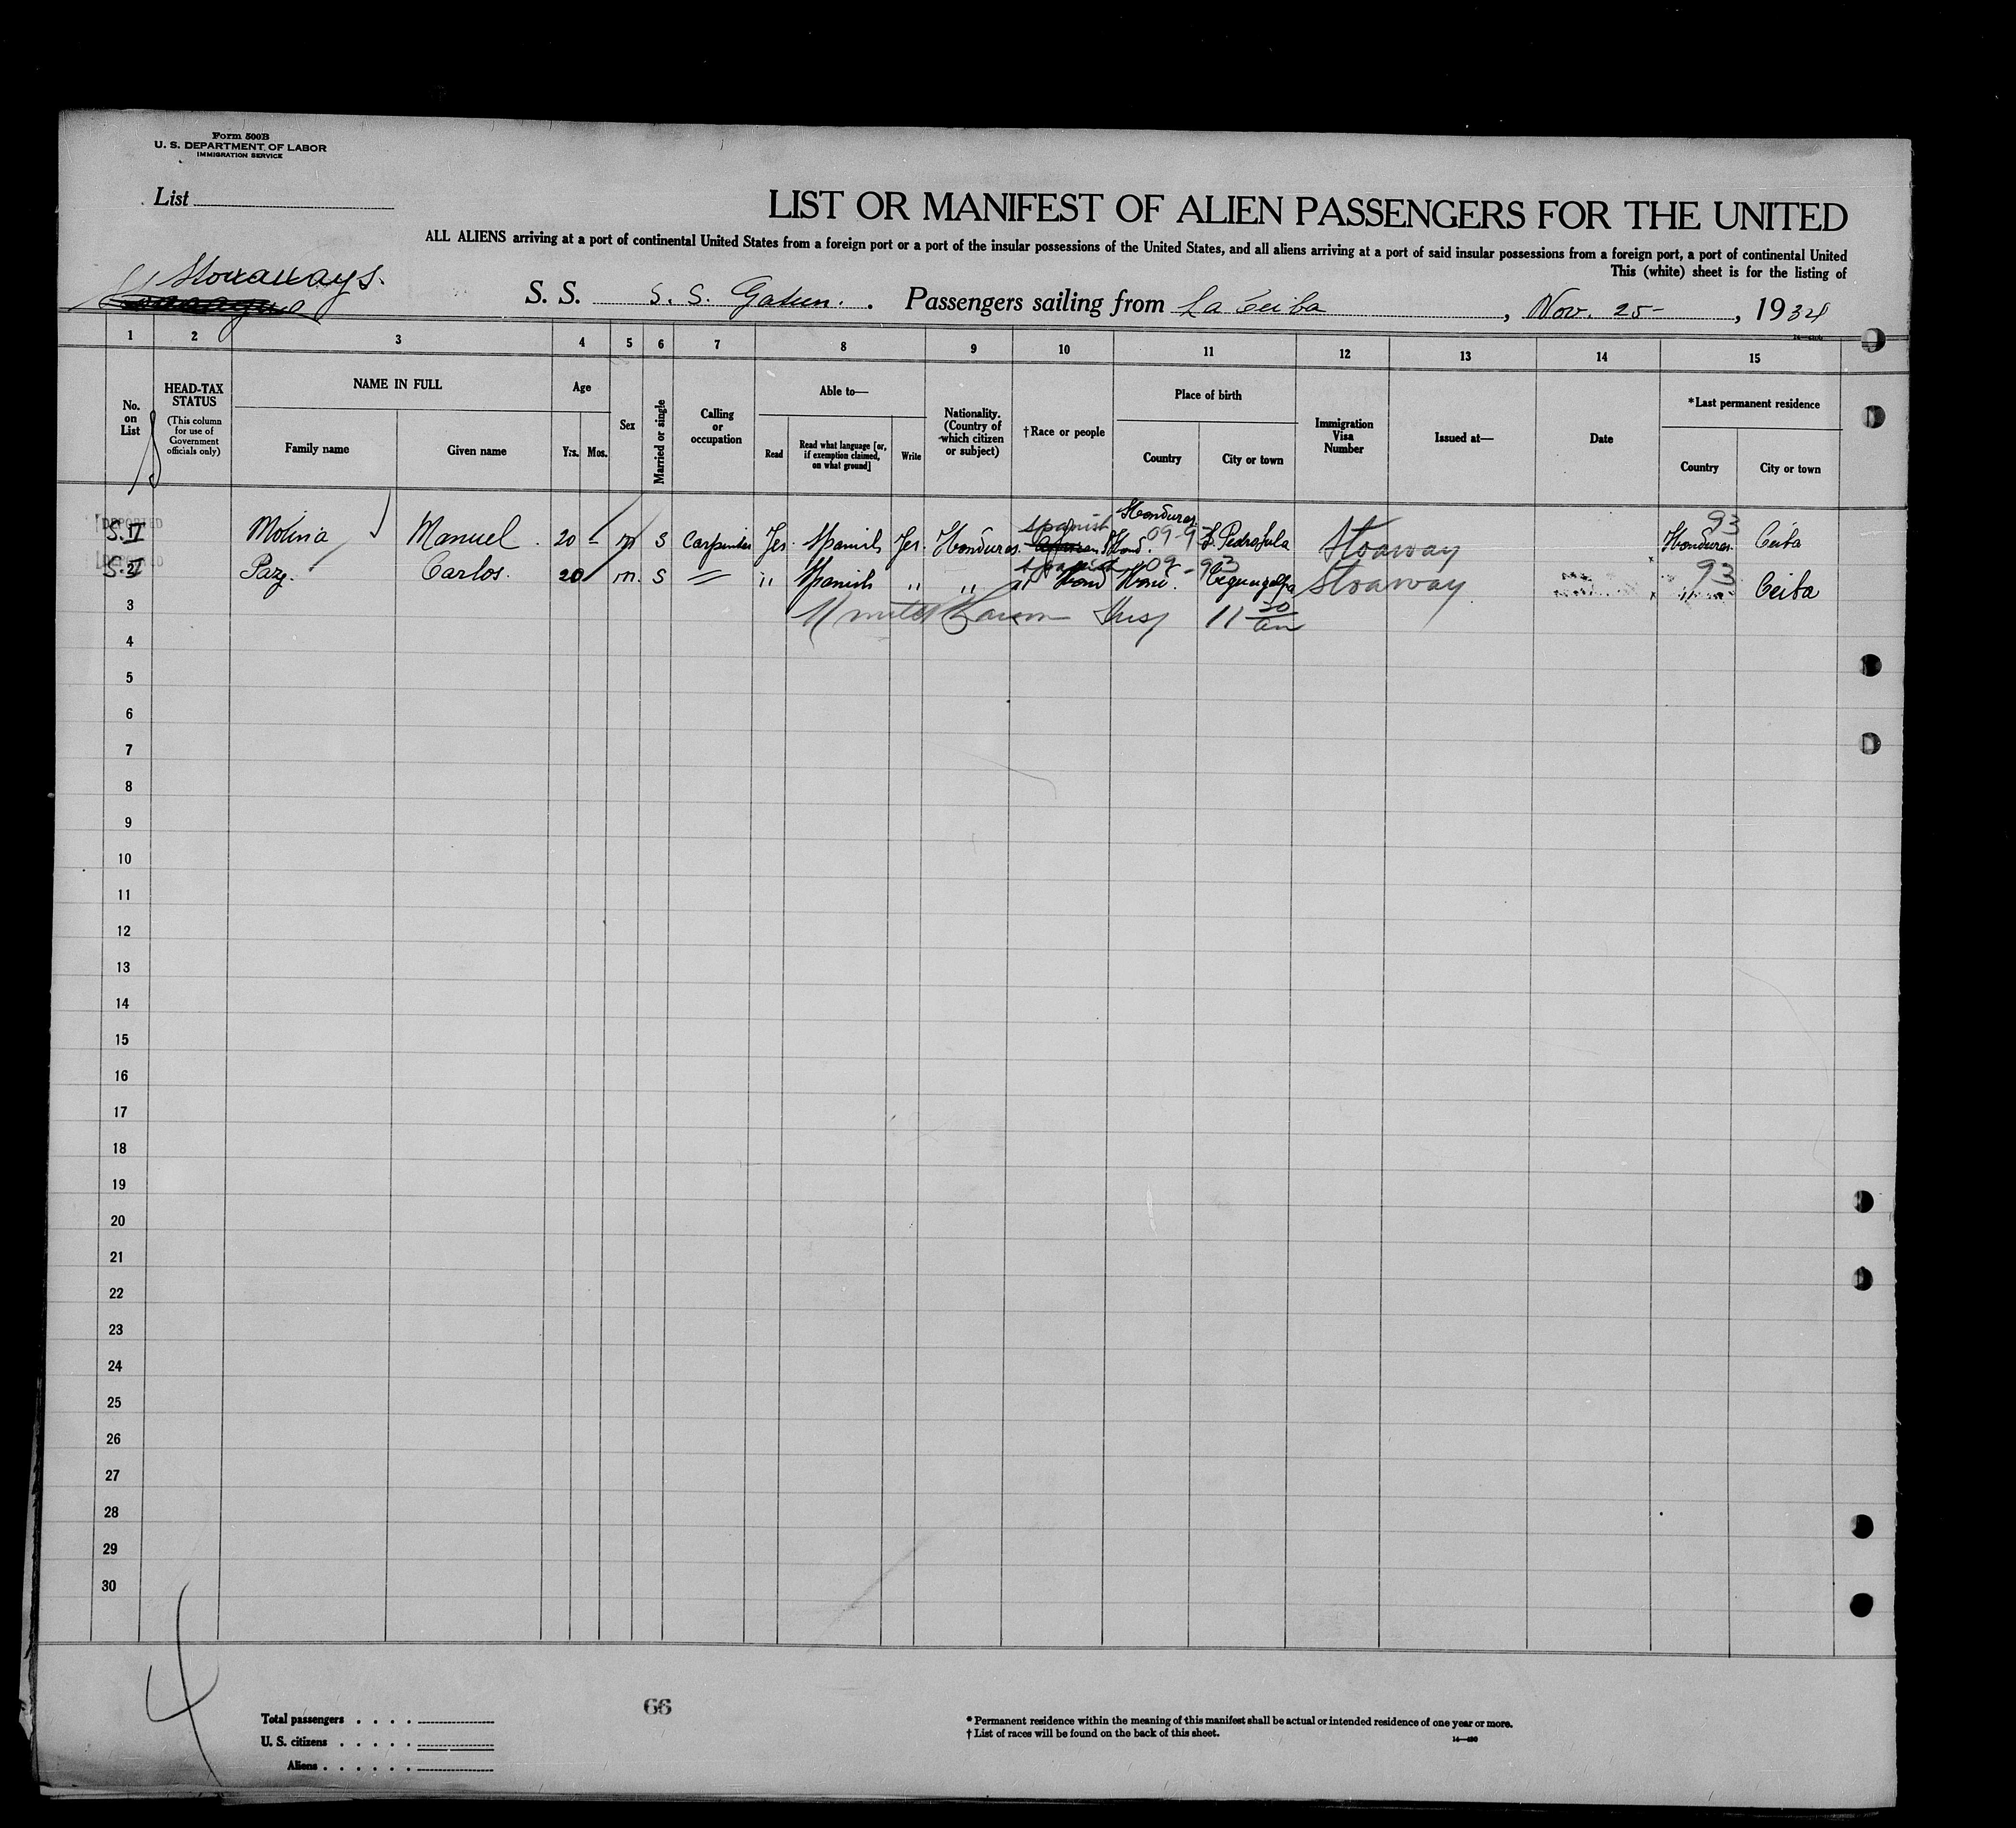 Form 500B
U. S. DEPARTMENT OF LABOR
IMMIGRATION SERVICE
List
LIST OR MANIFEST OF ALIEN PASSENGERS FOR THE UNITED
ALL ALIENS arriving at a port of continental United States from a foreign port or a port of the insular possessions of the United States, and all aliens arriving at a port of said insular possessions from a foreign port, a port of continental United
This (white) sheet is for the listing of
Stowaways.
S. S. S. S. Gatun. Passengers sailing from La Ceiba, Nov. 25-, 1934
1 2 3 4 5 6 7 8 9 10 11 12 13 14 15
No. on List
HEAD-TAX STATUS
(This column for use of Government officials only)
NAME IN FULL
Family name
Given name
Age
Yrs. Mos.
Sex
Married or single
Calling or occupation
Able to—
Read
Read what language [or, if exemption claimed, on what ground]
Write
Nationality. (Country of which citizen or subject)
†Race or people
Place of birth
Country
City or town
Immigration Visa Number
Issued at—
Date
*Last permanent residence
Country
City or town
DEPORTED
Spanish Honduras 93
Molina Manuel 20 - m S Carpenter Yes Spanish Yes Honduras Hond. 09-9 S. Pedro Sula Stoaway Honduras Ceiba
DEPORTED
Spanish 09-93 93
Paz. Carlos. 20 m. S " " Spanish " " Hond Tegucigalpa Stoaway " Ceiba
3 11 30 am
4
5
6
7
8
9
10
11
12
13
14
15
16
17
18
19
20
21
22
23
24
25
26
27
28
29
30
4
66
Total passengers . . . .
U. S. citizens . . . . .
Aliens . . . . . .
* Permanent residence within the meaning of this manifest shall be actual or intended residence of one year or more.
† List of races will be found on the back of this sheet.